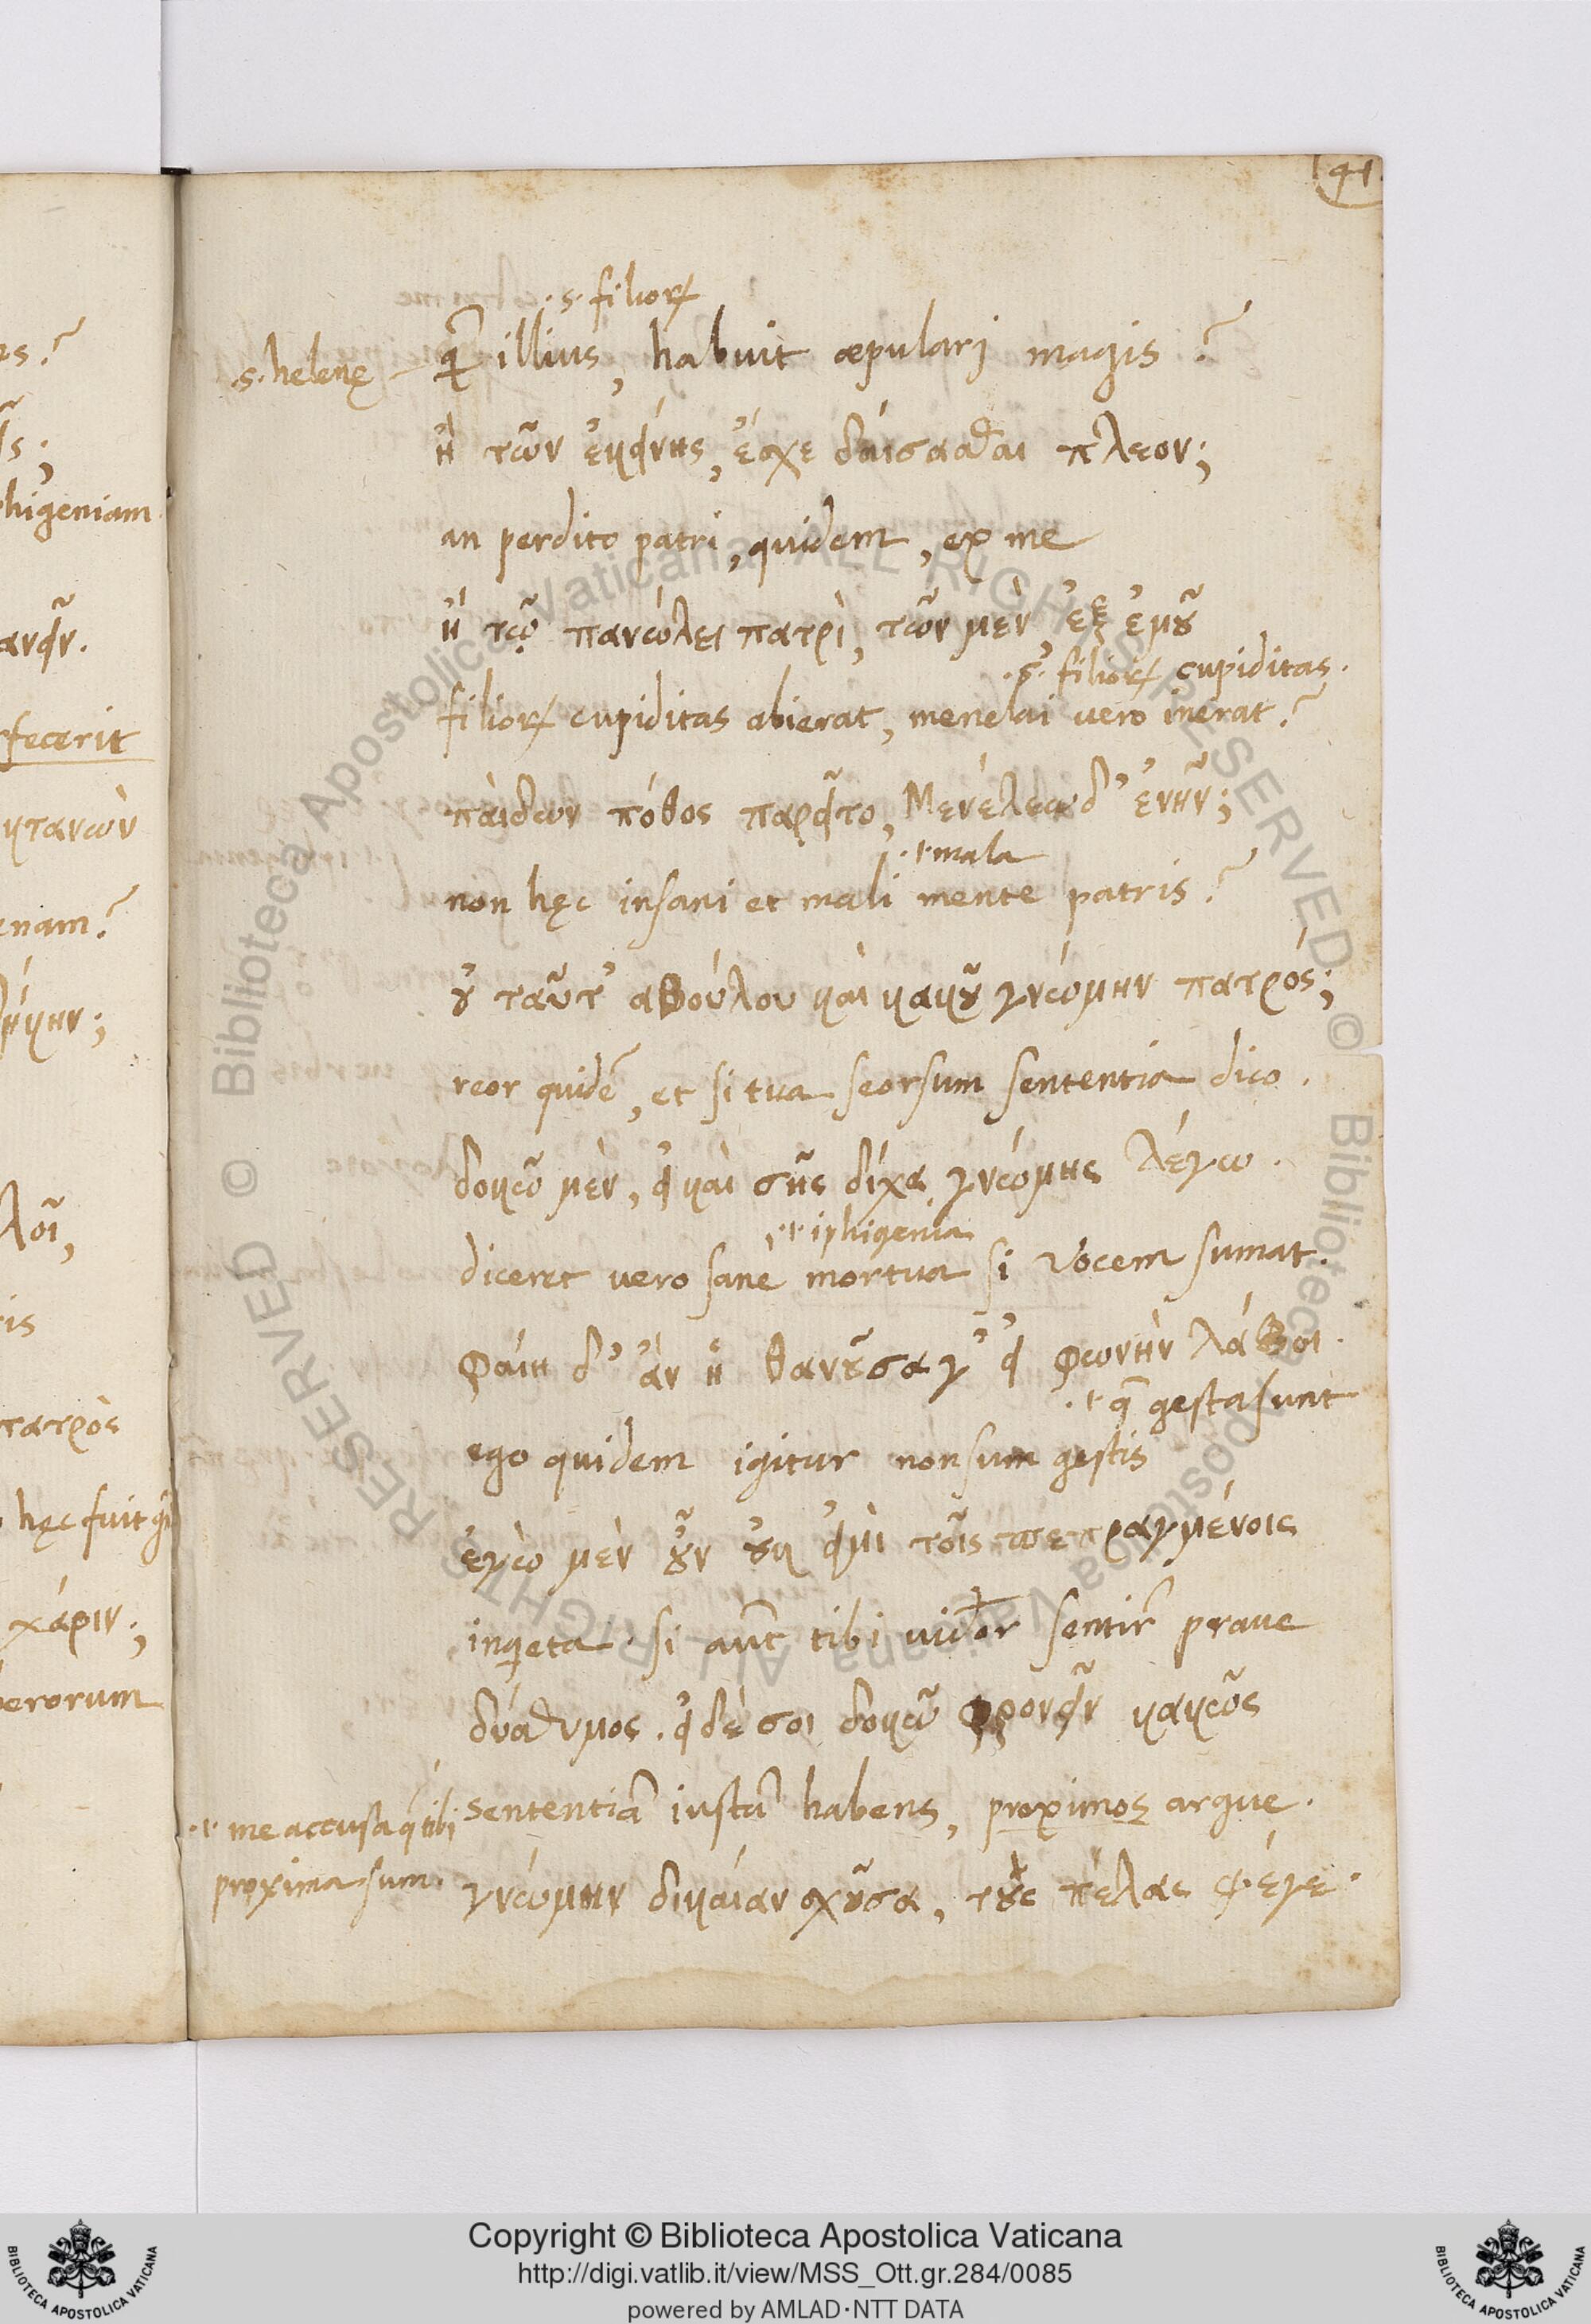 41
.s. filiorꝝ
.s. helenę
q̃ illius, habuit æpulari magis?
ἢ τῶν ἐκείνης, ἔσχε δαίσασθαι πλεον;
an perdito patri, quidem, ex me
ἢ τῷ πανώλει πατρὶ, τῶν μὲν, ἐξ ἐμοῦ
.s. filiorꝝ cupiditas.
filiorꝝ cupiditas abierat, menelai vero inerat?
πάιδων πόθος παρεῖτο, Μενέλεω δ' ἐνῆν;
.t. mala
non hęc insani et mali mente patris?
οὐ ταῦτ' αβούλου καὶ κακοῦ γνώμην πατρός;
reor quidẽ, et si tua seorsum sententia dico.
δοκῶ μὲν, εἰ καὶ σῆς δίχα γνώμης λέγω.
.t. iphigenia
diceret vero sane mortua si vocem sumat.
φάιη δ' ἂν ἡ θανοῦσα γ' εἰ φωνὴν λάβοι.
.t. q̃ gesta sunt
ego quidem igitur non sum gestis
ἐγὼ μὲν οὖν οὐκ εἰμὶ τοῖς πεπραγμένοις
inqeta. si aut̃ tibi videor sentir̃ prave
δύσθυμος. εἰ δέ σοι δοκῶ φρονεῖν κακῶς
.t. me accusa q̃ tibi
proxima sum.
sententiã iustã habens, proximos argue.
γνώμην δικαίαν σχοῦσα, τοὺς πέλας ψέγε.
rs?
higeniam
fecerit
κτανὼν
enam?
is
πατρὸς
hęc fuit
χάριν;
erorum
Copyright © Biblioteca Apostolica Vaticana
http://digi.vatlib.it/view/MSS_Ott.gr.284/0085
powered by AMLAD·NTT DATA
BIBLIOTECA APOSTOLICA VATICANA
BIBLIOTECA APOSTOLICA VATICANA